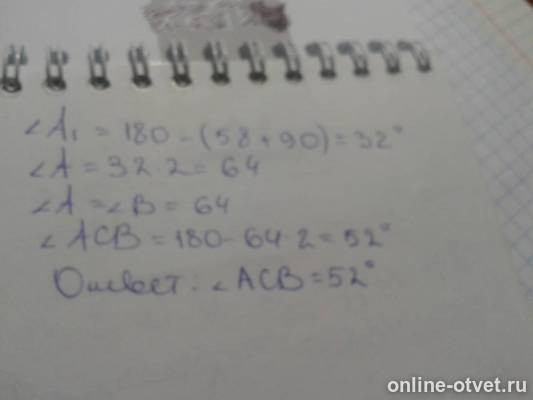 ∠A₁ = 180 - (58 + 90) = 32°
∠A = 32 · 2 = 64
∠A = ∠B = 64
∠ACB = 180 - 64 · 2 = 52°
Ответ: ∠ACB = 52°
online-otvet.ru